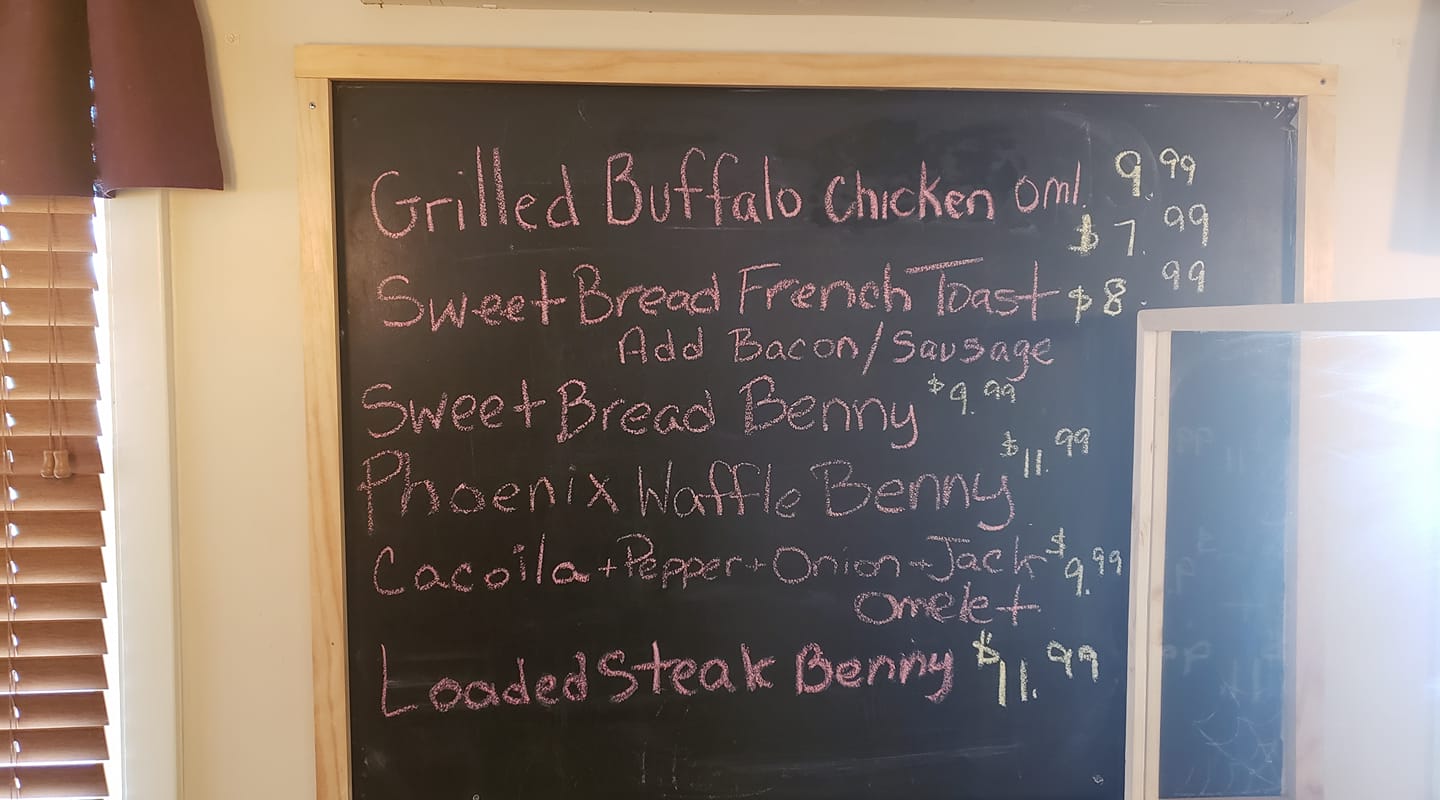 Grilled Buffalo Chicken oml. 9.99
$7.99
Sweet Bread French Toast $8.99
Add Bacon/Sausage
Sweet Bread Benny $9.99
Phoenix Waffle Benny $11.99
Cacoila + Pepper + Onion + Jack $9.99
Omelet
Loaded Steak Benny $11.99